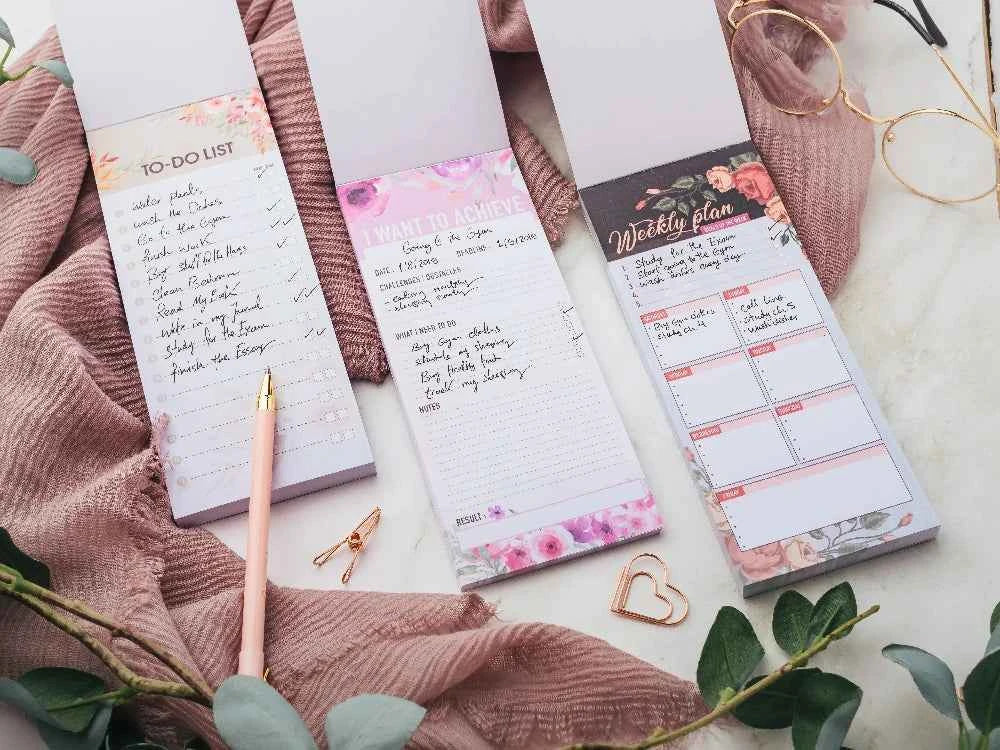 TO-DO LIST
water plants
wash the Dishes
Go to the Gym
finish work
Buy stuff for the House
Clean Bathroom
Read My Book
write in my Journal
Study for the Exam
finish the Essay
I WANT TO ACHIEVE
Going to the Gym
DATE: 1/8/2019 DEADLINE:
CHALLENGES / OBSTACLES
- eating
- sleeping
WHAT I NEED TO DO
Buy Gym clothes
schedule my sleeping
Buy Healthy food
track my sleeping
NOTES
RESULT:
Weekly plan
GOALS OF THE WEEK
1. Study for the Exam
2. Start going to the Gym
3. wash dishes every day
4.
SATURDAY
Buy Gym clothes
Study ch 4
SUNDAY
Study ch 5
wash dishes
MONDAY
TUESDAY
WEDNESDAY
THURSDAY
FRIDAY